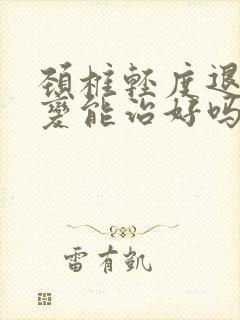 颈椎轻度退
变能治好吗
雷有凯